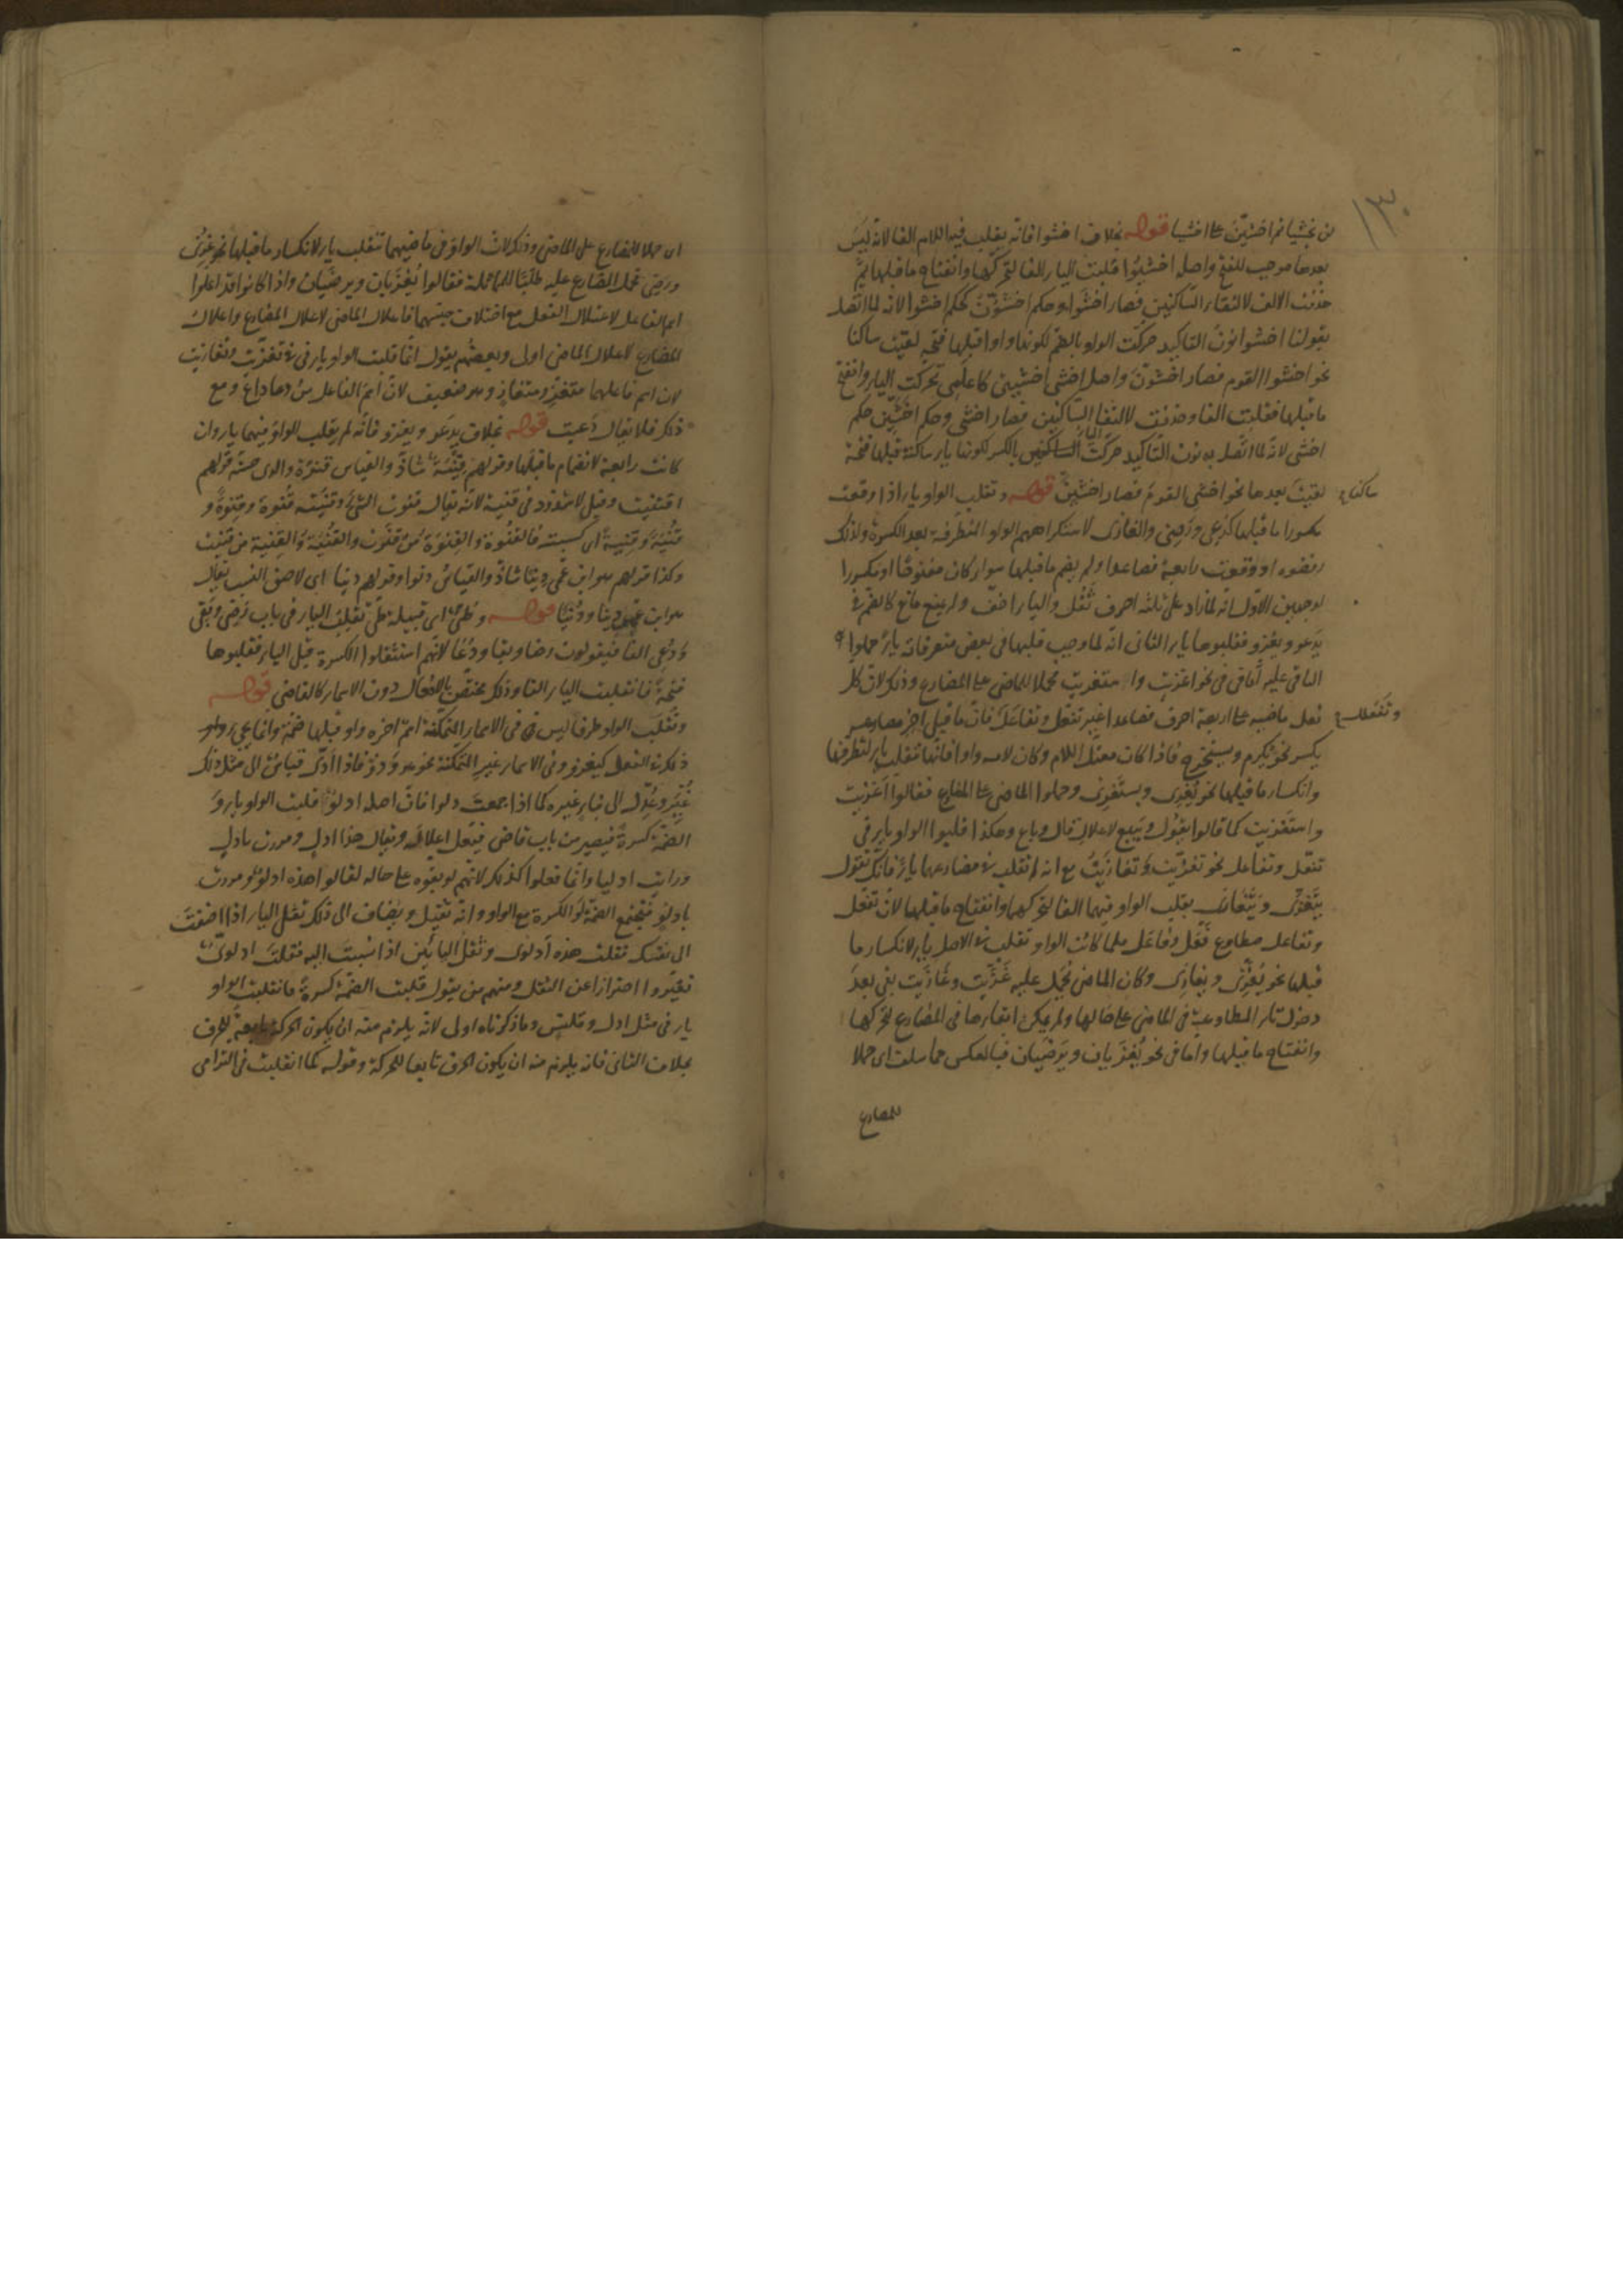 ١٣٠
لن يخشيا ثم اخشين على اخشيا قوله بخلاف اخشوا فانه يقلب فيه اللام الفا لانه ليس
بعدها موجب للفتح واصل اخشوا اخشيوا قلبت الياء الفا لتحركها وانفتاح ما قبلها ثم
حذفت الالف لالتقاء الساكنين فصار اخشوا وحكم اخشون حكم اخشوا لانه لما اتصل
بقولنا اخشوا نون التاكيد حركت الواو بالضم لكونها واوا قبلها فتحة لقيت ساكنا
نحو اخشوا القوم فصار اخشون واصل اخشى اخشيى كاعلمى تحركت الياء وانفتح
ما قبلها فقلبت الفا وحذفت لالتقاء الساكنين فصار اخشى وحكم اخشين حكم
اخشى لانه لما اتصل به نون التاكيد حركت الياء بالكسر لكونها ياء ساكنة قبلها فتحة
لقيت بعدها ساكنا نحو اخشى القوم فصار اخشين قوله وتقلب الواو ياء اذا وقعت
مكسورا ما قبلها كدعى ورضى والغازى لاستكراههم الواو المتطرفة بعد الكسرة ولذلك
رفضوه او وقعت رابعة فصاعدا ولم يضم ما قبلها سواء كان مفتوحا او مكسورا
لوجهين الاول انه لما زاد على ثلثة احرف ثقل والياء اخف ولم يمنع مانع كالضم فى
يدعو ويغزو فقلبوها ياء الثانى انه لما وجب قلبها فى بعض متصرفاته ياء حملوا
الباقى عليه اما فى نحو اغزيت واستغزيت فحملا للماضى على المضارع وذلك لان كل
فعل ماضيه على اربعة احرف فصاعدا غير تفعل وتفاعل وتفعلل فان ما قبل اخر مضارعه
يكسر نحو يكرم ويستخرج فاذا كان معتل اللام وكان لامه واوا فانها تقلب ياء لتطرفها
وانكسار ما قبلها نحو يغزى ويستغزى وحملوا الماضى على المضارع فقالوا اغزيت
واستغزيت كما قالوا يقول ويبيع لاعلال قال وباع وهكذا قلبوا الواو ياء فى
تفعل وتفاعل نحو تغزيت وتغازيت مع انه لم تقلب فى مضارعهما ياء فانك تقول
يتغزى ويتغازى بقلب الواو فيهما الفا لتحركها وانفتاح ما قبلها لان تفعل
وتفاعل مطاوع فعل وفاعل فلما كانت الواو تقلب فى الاصل ياء لانكسار ما
قبلها نحو يغزى ويغازى وكان الماضى يحمل عليه غزيت وغازيت بقى بعد
دخول تاء المطاوعة فى الماضى على حالها ولم يمكن ابقاؤها فى المضارع لتحركها
وانفتاح ما قبلها واما فى نحو يغزيان ويرضيان فبالعكس مما سلف اى حملا
للمضارع
اى حملا للمضارع على الماضى وذلك لان الواو فى ماضيهما تنقلب ياء لانكسار ما قبلها نحو غزى
ورضى فحمل المضارع عليه طلبا للمماثلة فقالوا يغزيان ويرضيان واذا كانوا قد اعلوا
اسم الفاعل لاعتلال الفعل مع اختلاف جنسهما فاعلال الماضى لاعلال المضارع واعلال
المضارع لاعلال الماضى اولى وبعضهم يقول انما قلبت الواو ياء فى تغزيت وتغازيت
لان اسم فاعلهما متغز ومتغاز وهو ضعيف لان اسم الفاعل من دعا داع ومع
ذلك فلا يقال دعيت قوله بخلاف يدعو ويغزو فانه لم يقلب الواو فيهما ياء وان
كانت رابعة لانضمام ما قبلها وقولهم قنية شاذ والقياس قنوة والذى حسنه قولهم
اقتنيت وقيل لا شذوذ فى قنية لانه يقال قنوت الشئ وقنيته قنوة وقنوة و
قنية وقنية اى كسبته فالقنوة والقنوة من قنوت والقنية والقنية من قنيت
وكذا قولهم هو ابن عمى دنيا شاذ والقياس دنوا وقولهم دنيا اى لاصق النسب يقال
هو ابن عمى دنيا ودنيا قوله وطئ اى قبيلة طئ تقلب الياء فى باب رضى وبقى
ودعى الفا فيقولون رضا وبقا ودعا لانهم استثقلوا الكسرة قبل الياء فقلبوها
فتحة فانقلبت الياء الفا وذلك مختص بالافعال دون الاسماء كالقاضى قوله
وتقلب الواو طرفا ليس فى الاسماء المتمكنة اسم اخره واو قبلها ضمة وانما يجئ
ذلك فى الفعل كيغزو وفى الاسماء غير المتمكنة نحو هو وذو فاذا ادى قياس الى مثل ذلك
غير وعدل الى بناء غيره كما اذا جمعت دلوا فان اصله ادلو قلبت الواو ياء و
الضمة كسرة فيصير من باب قاض فيعل اعلاله ويقال هذا ادل ومررت بادل
ورايت ادليا وانما فعلوا كذلك لانهم لو بقوه على حاله لقالوا هذه ادلو ومررت
بادلو فتجتمع الضمة او الكسرة مع الواو وانه ثقيل ويضاف الى ذلك ثقل الياء اذا اضفت
الى نفسك فقلت هذه ادلوى وثقل اليائين اذا نسبت اليه فقلت ادلوى
فغيروا احترازا عن الثقل ومنهم من يقول قلبت الضمة كسرة فانقلبت الواو
ياء فى مثل ادل وقلنس وما ذكرناه اولى لانه يلزم منه ان يكون الحركة تابعة للحرف
بخلاف الثانى فانه يلزم منه ان يكون الحرف تابعا للحركة وقوله كما انقلبت فى الترامى